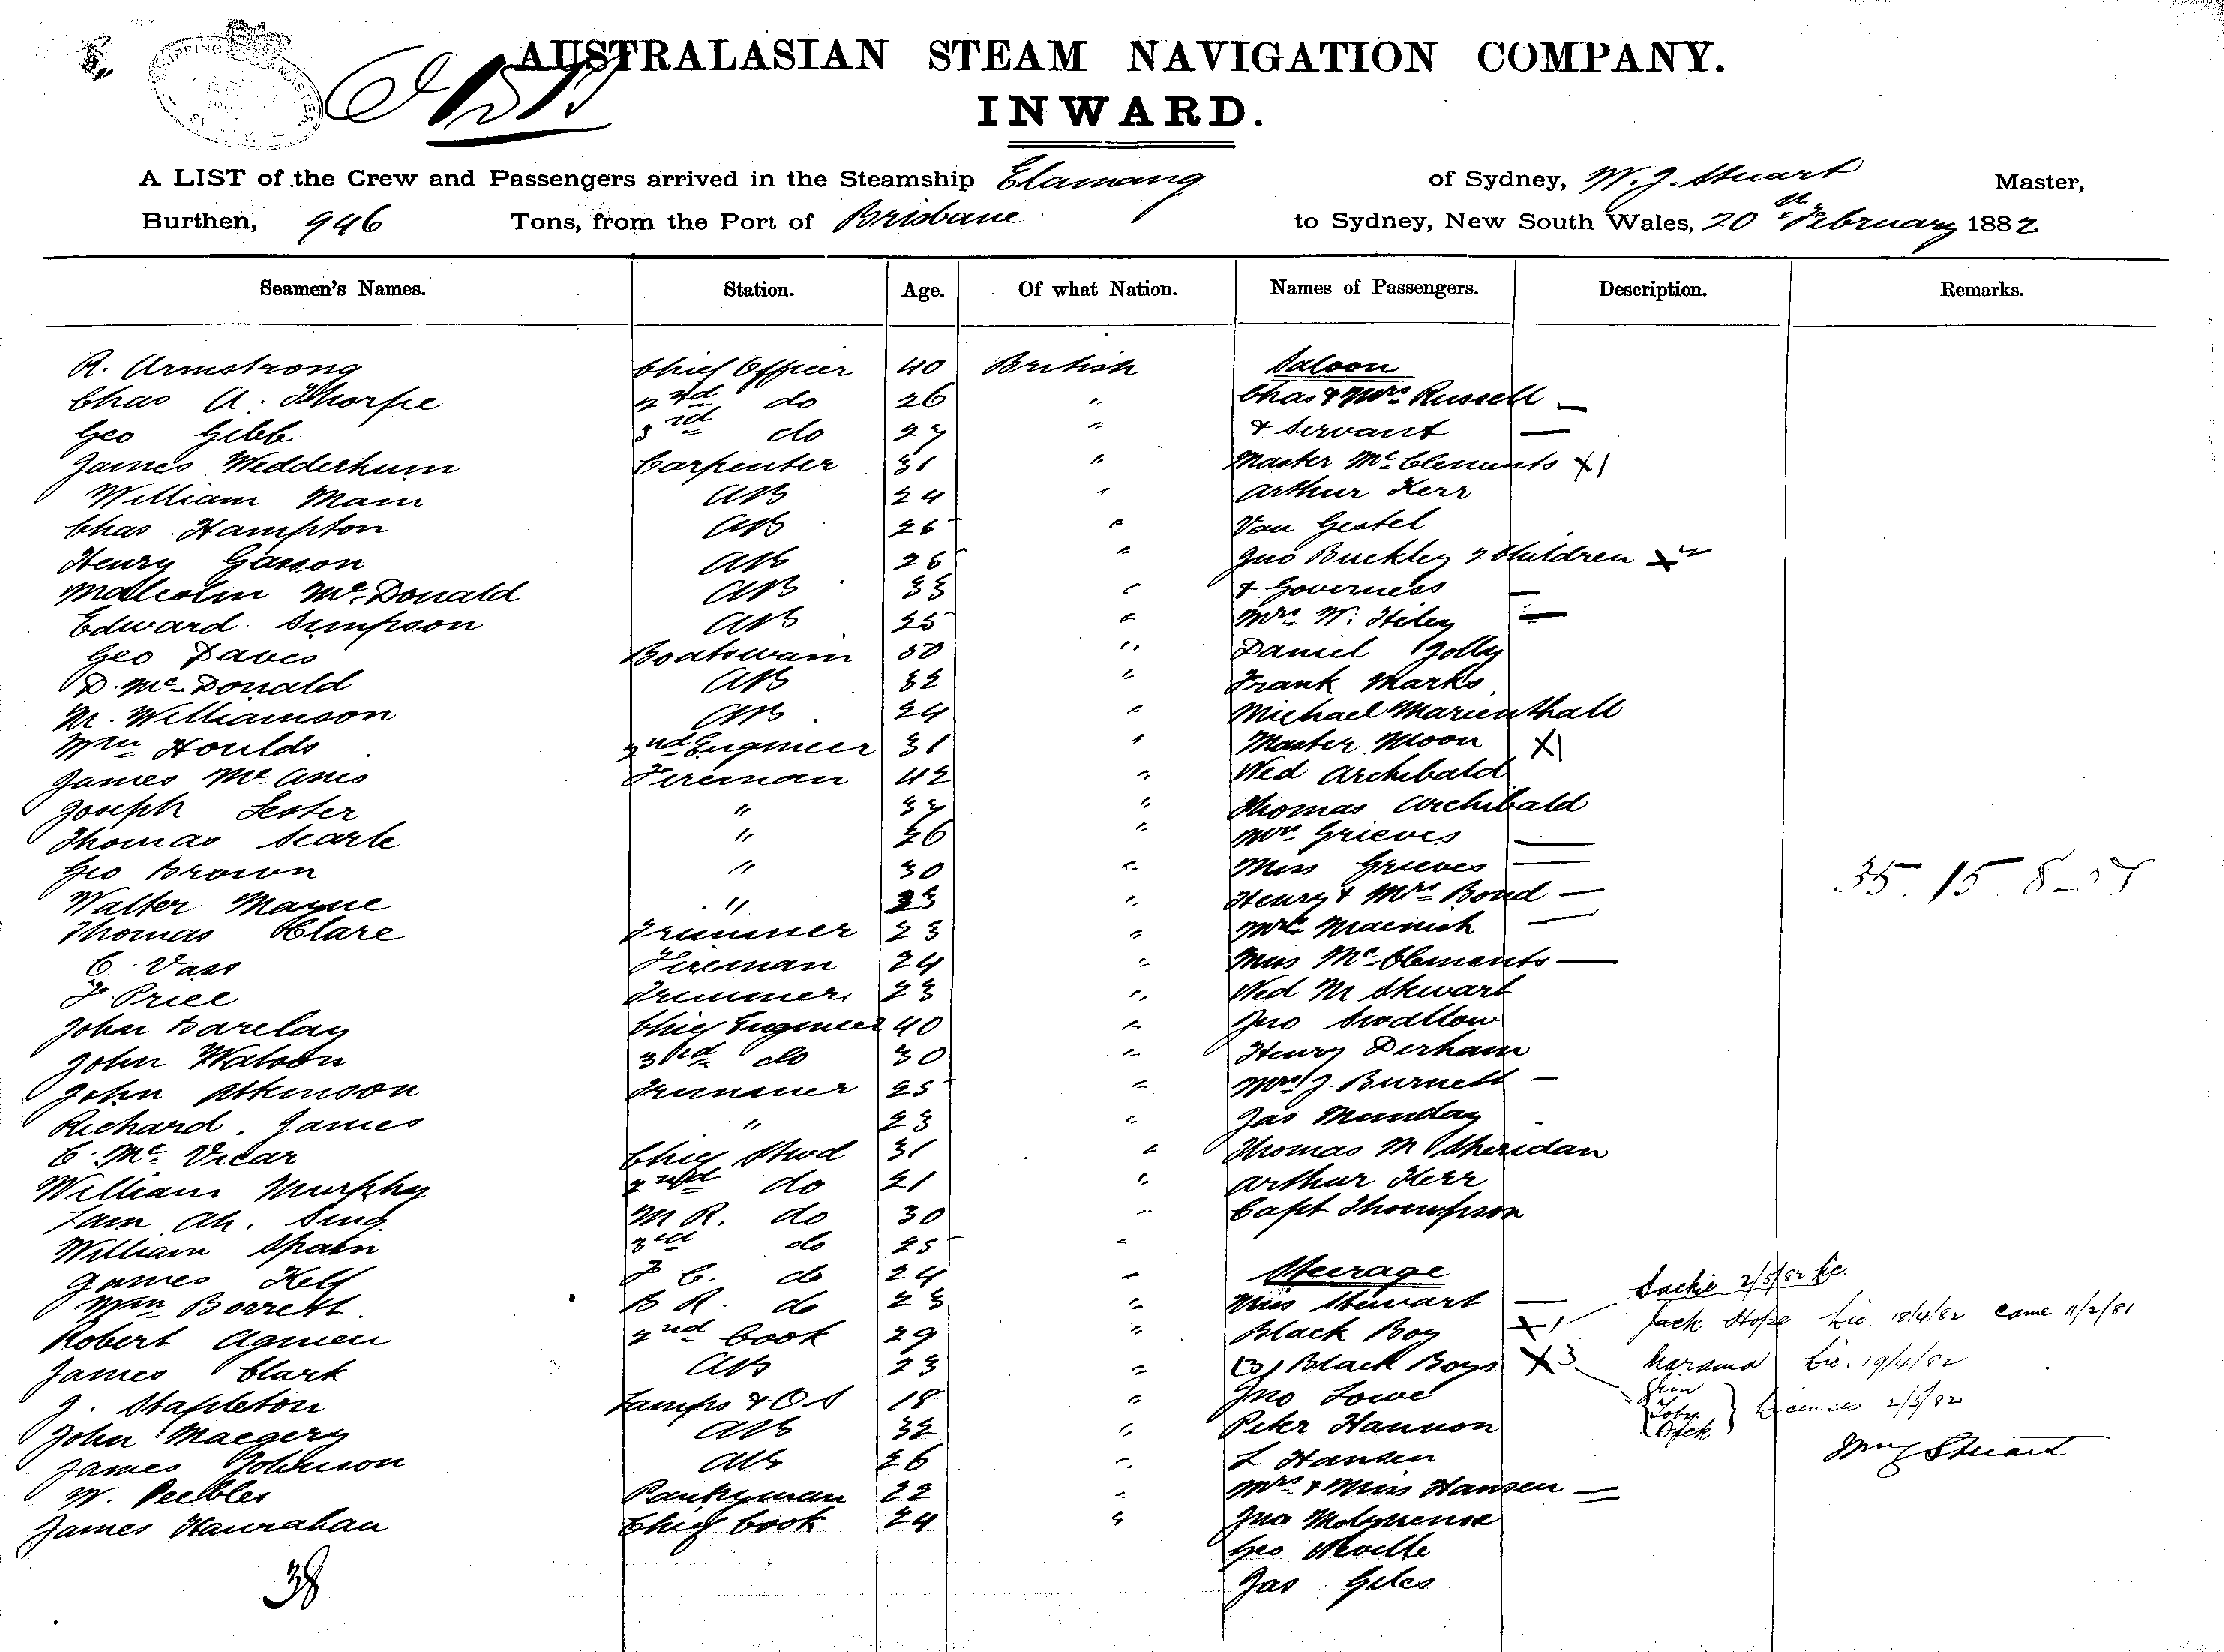 AUSTRALASIAN STEAM NAVIGATION COMPANY.
INWARD.
A LIST of the Crew and Passengers arrived in the Steamship Elamang of Sydney, W. J. Stuart Master,
Burthen, 946 Tons, from the Port of Brisbane to Sydney, New South Wales, 20th February 1882
Seamen's Names. Station. Age. Of what Nation. Names of Passengers. Description. Remarks.
R. Armstrong Chief Officer 40 British Saloon
Chas A. Thorpe 2nd do 26 " Chas & Mrs Russell —
Geo Gibb 3rd do 27 " & Servant —
James Wedderhum Carpenter 31 " Master McClements X1
William Mair AB 24 " Arthur Kerr
Chas Hampton AB 26 " Van Gestel
Henry Gasson AB 26 " Jno Buckley 2 Children X2
Malcolm McDonald AB 33 " & Governess —
Edward Simpson AB 25 " Mrs W. Hiley —
Geo Daves Boatswain 50 " Daniel Jolly
D. McDonald AB 32 " Frank Marks
M. Williamson AB 24 " Michael Marienthall
Wm Houlds 2nd Engineer 31 " Master Moon X1
James McAnis Fireman 42 " Wed Archibald
Joseph Lester " 37 " Thomas Archibald
Thomas Searle " 26 " Mrs Grieves —
Geo Brown " 30 " Miss Grieves —
Walter Mayne " 23 " Henry & Mrs Bond — 35. 15. 8
Thomas Clare Trimmer 23 " Mrs —
C. Vass Fireman 24 " Miss McClements —
F Price Trimmer 23 " Wed M Stewart
John Barclay Chief Engineer 40 " Jno Swallow
John Watson 3rd do 30 " Henry Derham
John Atkinson Trimmer 25 " Mrs J. Burnett —
Richard James " 23 " Jas Munday
C. McVicar Chief Stwd 31 " Thomas M Sheridan
William Murphy 2nd do 21 " Arthur Kerr
Lam Ah. Sing M R. do 30 " Capt Thompson
William Spain 3rd do 25 "
James Kelt F C. do 24 " Steerage
Wm Borrett B R. do 23 " Miss Stewart — 2/3/82
Robert Agnew 2nd Cook 29 " Black Boy X1 Jack Hope Lic. 18/4/82 came 11/2/81
James Clark AB 23 " (3) Black Boys X3 Lic. 19/4/82
J. Stapleton Lamps & OS 18 " Jno Lowe
John Maegery AB 32 " Peter Hannon Toby } Licences 2/3/82
James Johnson AB 26 " L Hansen Wm J Stuart
W. Peebles Pantryman 22 " Mrs & Miss Hansen =
James Hanrahan Chief Cook 24 " Jno Molyneux
Geo Neville
Jas Giles
38